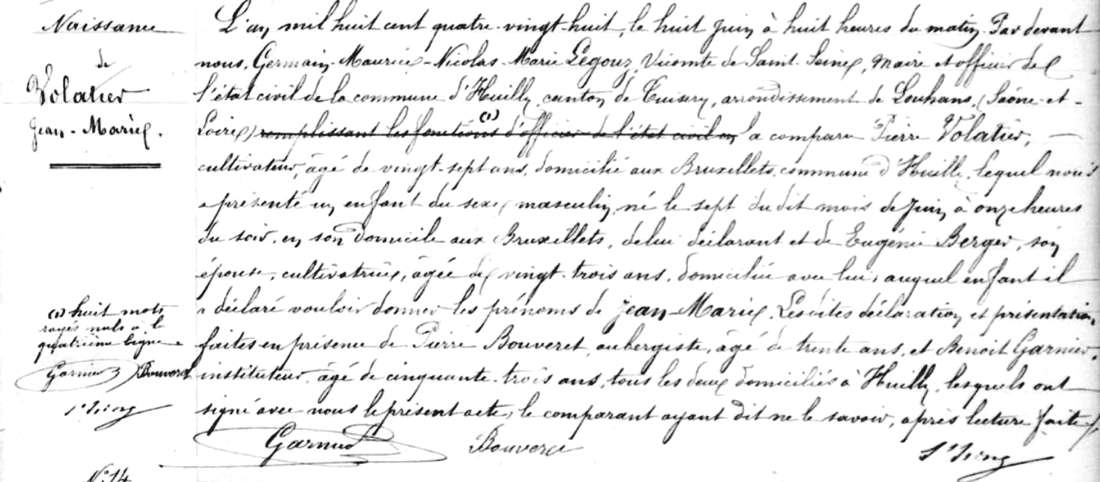 Naissance
de
Volatier
Jean-Marie.
L'an mil huit cent quatre-vingt-huit, le huit Juin à huit heures du matin, Par devant
nous, Germain-Maurice-Nicolas-Marie Legouz, Vicomte de Saint Seine, Maire et officier de
l'état civil de la commune d'Huilly, canton de Cuisery, arrondissement de Louhans, (Saône-et-
Loire) remplissant les fonctions (1) d'officier de l'état civil en, a comparu Pierre Volatier,
cultivateur, âgé de vingt-sept ans, domicilié aux Bruxillets, commune d'Huilly, lequel nous
a présenté un enfant du sexe masculin, né le sept du dit mois de Juin à onze heures
du soir, en son domicile aux Bruxillets, de lui déclarant et de Eugénie Berger, son
épouse, cultivatrice, âgée de vingt-trois ans, domiciliée avec lui, auquel enfant il
a déclaré vouloir donner les prénoms de Jean-Marie. Lesdites déclaration et présentation
faites en présence de Pierre Bouveret, aubergiste, âgé de trente ans, et Benoît Garnier,
instituteur, âgé de cinquante-trois ans, tous les deux domiciliés à Huilly, lesquels ont
signé avec nous le présent acte, le comparant ayant dit ne le savoir, après lecture faite.
(1) huit mots
rayés nuls à la
quatrième ligne
Garnier Bouveret
St Seine
Garnier Bouveret St Seine
No 14